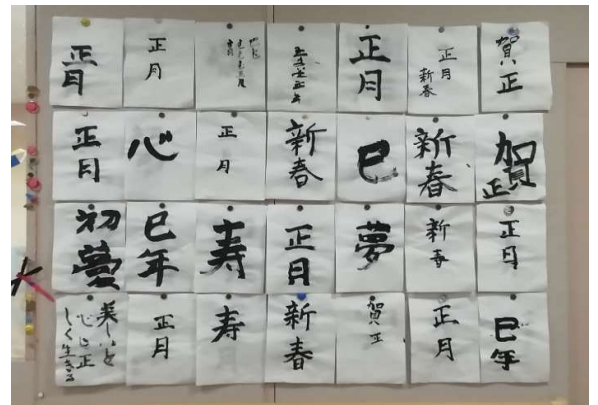 正月
正月
正月
正月
新春
賀正
正月
心
正月
新春
巳
新春
賀正
初夢
巳年
寿
正月
夢
新春
正月
美しい
心に正
しく生きる
正月
寿
新春
賀正
正月
巳年